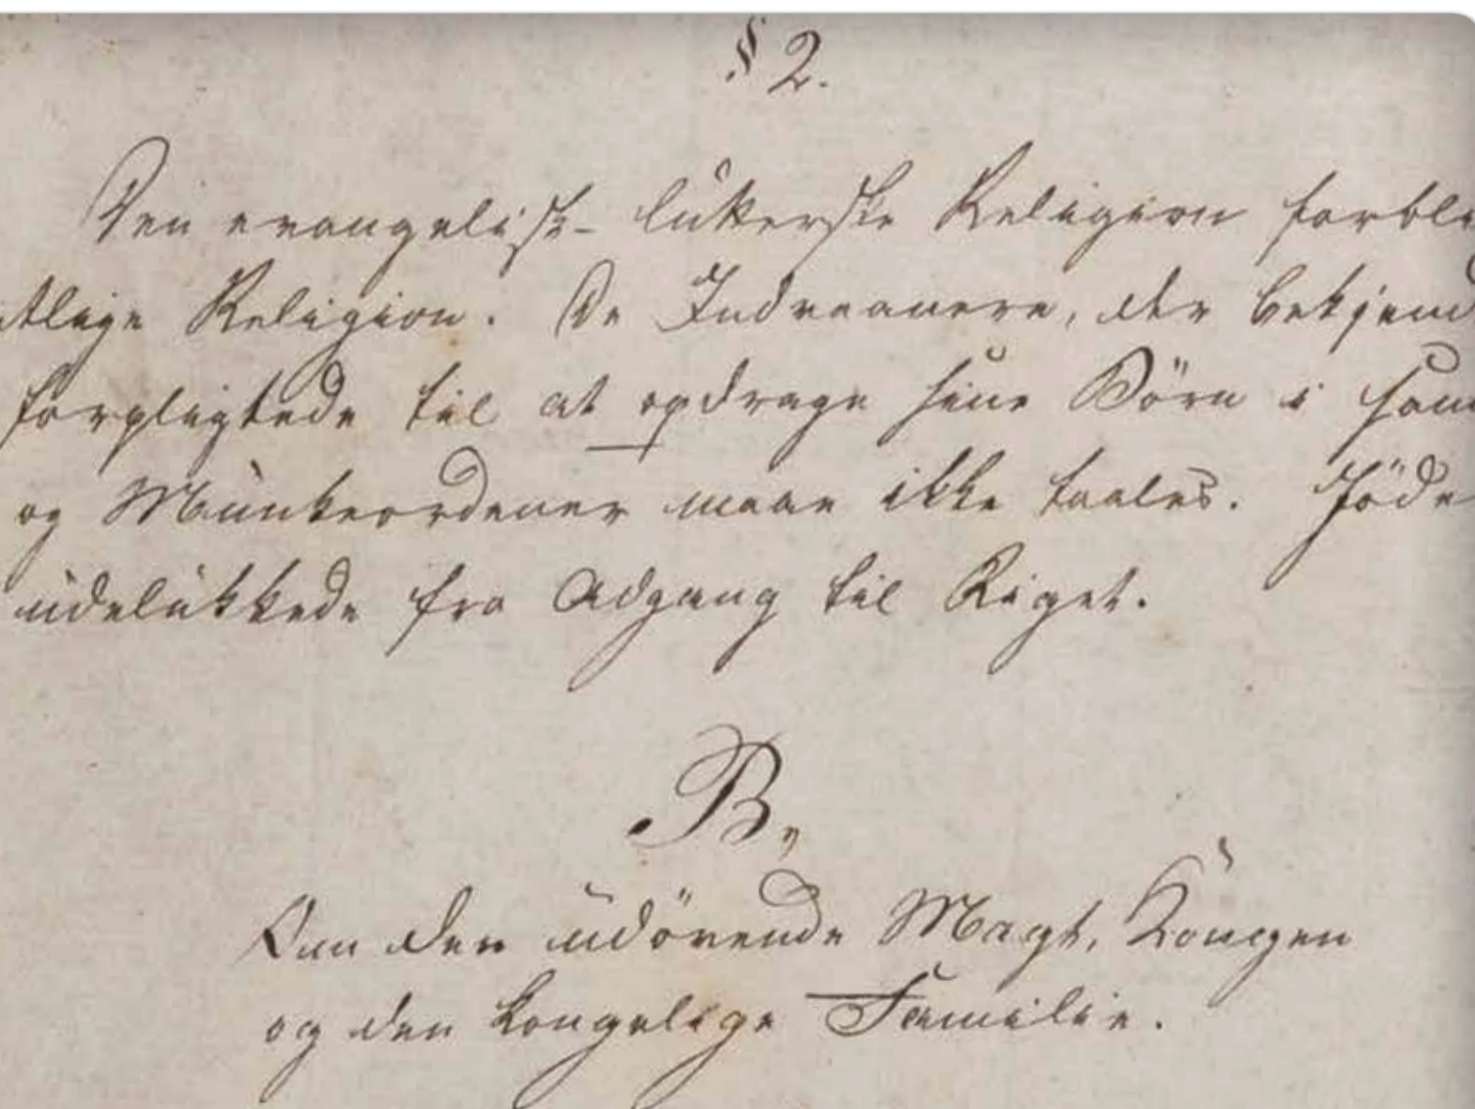 § 2.
Den evangelisk-lutherske Religion forbli
ntlige Religion. De Indvaanere, der bekjend
forpligtede til at opdrage sine Börn i sam
og Munkeordener maae ikke taales. Jöde
udelukkede fra Adgang til Riget.
B,
Om den udövende Magt, Kongen
og den kongelige Familie.